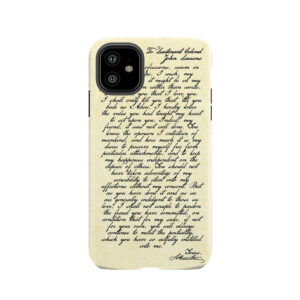 To Lieutenant Colonel
John Laurens
professions, warm in
I wish, my
might be in my
rather than words,
you that I love you.
I shall only tell you that 'till you
bade us Adieu, I hardly knew
the value you had taught my heart
to set upon you. Indeed, my
friend, it was not well done. You
know the opinion I entertain of
mankind, and how much it is my
desire to preserve myself free from
particular attachments, and to keep
my happiness independent on the
caprice of others. You should not
have taken advantage of my
sensibility to steal into my
affections without my consent. But
as you have done it and as we
are generally indulgent to those we
love, I shall not scruple to pardon
the fraud you have committed, on
condition that for my sake, if not
for your own, you will always
continue to merit the partiality,
which you have so artfully instilled
into me.
Yours,
A Hamilton